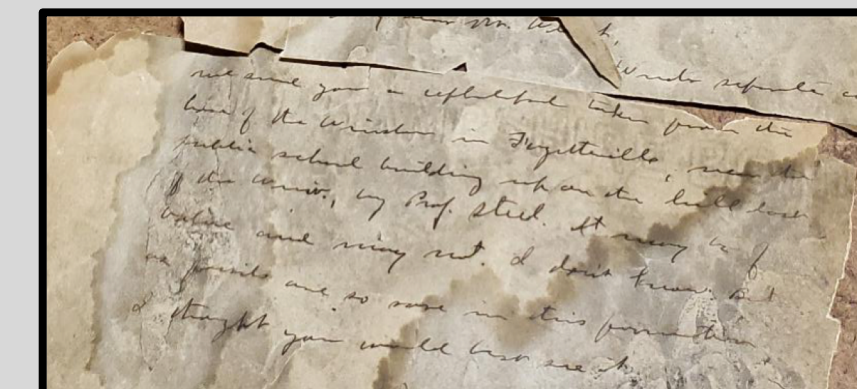 Under separate
we send you a cephalopod taken from the
base of the Winslow in Fayetteville, near the
public school building up on the hill
of the Univ., by Prof. Steel. It may be of
value and may not. I don't know but
as fossils are so rare in this formation
I thought you would see it